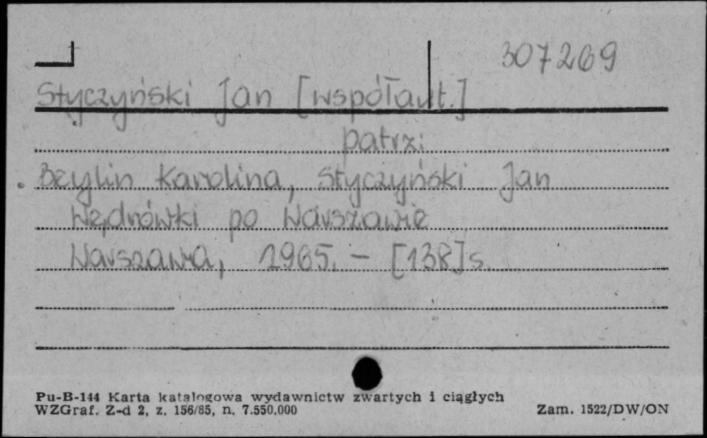 307269
Styczyński Jan [współaut.]
patrz:
Beylin Karolina, Styczyński Jan
Wędrówki po Warszawie
Warszawa, 1965. - [138]s.
Pu-B-144 Karta katalogowa wydawnictw zwartych i ciągłych
WZGraf. Z-d 2, z. 156/85, n. 7.550.000 Zam. 1522/DW/ON